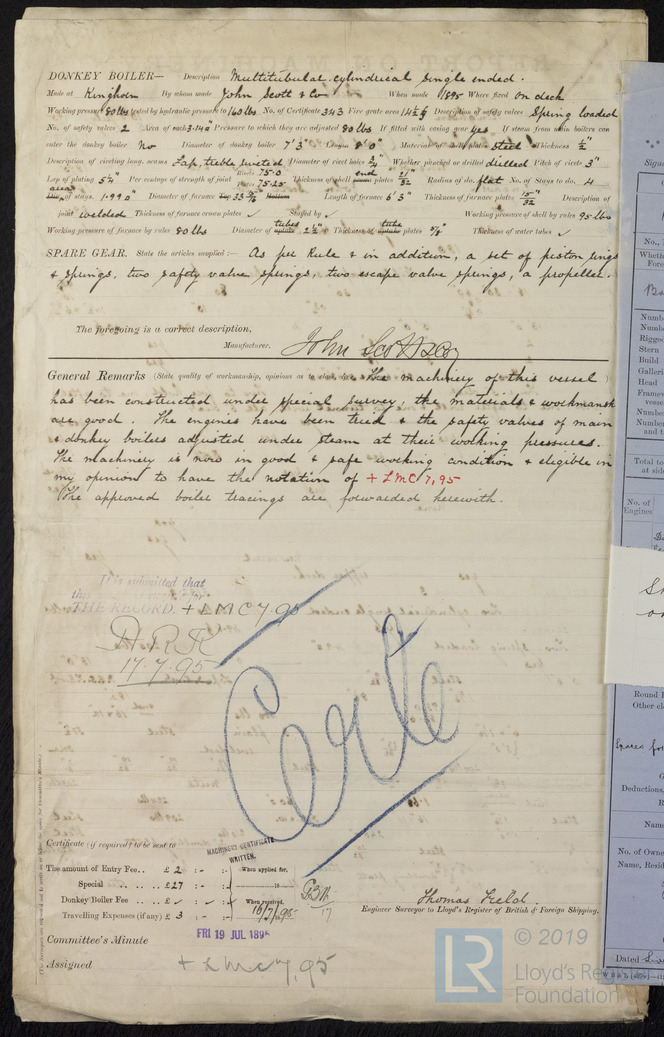 DONKEY BOILER— Description Multitubular cylindrical single ended.
Made at Kinghorn By whom made John Scott & Co When made 1895 Where fixed On deck
Working pressure 80 lbs tested by hydraulic pressure to 160 lbs No. of Certificate 343 Fire grate area Description of safety valves Spring loaded
No. of safety valves 2 Area of each 3.14" Pressure to which they are adjusted 80 lbs If fitted with easing gear yes If steam from main boilers can
enter the donkey boiler No Diameter of donkey boiler 7' 3" Length 8' 0" Material of shell plates steel Thickness ½"
Description of riveting long. seams Lap, treble riveted Diameter of rivet holes ¾" Whether punched or drilled drilled Pitch of rivets 3"
Lap of plating 5¼" Per centage of strength of joint Rivets 75.0 Plates 75.25 Thickness of shell end plates 21/32 Radius of do. flat No. of Stays to do. 4
area of stays. 1.99" Diameter of furnace Top 33 Bottom Length of furnace 6' 3" Thickness of furnace plates 15"/32 Description of
joint welded Thickness of furnace crown plates ✓ Stayed by ✓ Working pressure of shell by rules 95 lbs
Working pressure of furnace by rules 80 lbs Diameter of tubes uptake 2½" Thickness of tube uptake plates Thickness of water tubes ✓
SPARE GEAR. State the articles supplied:— As per Rule & in addition, a set of piston rings
& springs, two safety valve springs, two escape valve springs, a propeller.
The foregoing is a correct description,
Manufacturer. John Scott & Co
General Remarks (State quality of workmanship, opinions as to class, &c. The machinery of this vessel
has been constructed under special survey; the materials & workmansh
are good. The engines have been tried & the safety valves of main
& donkey boilers adjusted under steam at their working pressures.
The machinery is now in good & safe working condition & eligible in
my opinion to have the notation of + LMC 7,95
The approved boiler tracings are forwarded herewith.
It is submitted that
this
THE RECORD. + LMC 7.95
17.7.95
Certe
Certificate (if required) to be sent to
MACHINERY CERTIFICATE
WRITTEN.
The amount of Entry Fee.. £ 2 : - : - When applied for,
Special .. .. .. £ 27 : - : - 18
Donkey Boiler Fee .. .. £ ✓ : ✓ : ✓ When received,
Travelling Expenses (if any) £ 3 : - : - 16/7/95 17
Thomas Field.
Engineer Surveyor to Lloyd's Register of British & Foreign Shipping.
Committee's Minute FRI 19 JUL 1895
Assigned + LMC 7,95
LR © 2019
Lloyd's Register
Foundation